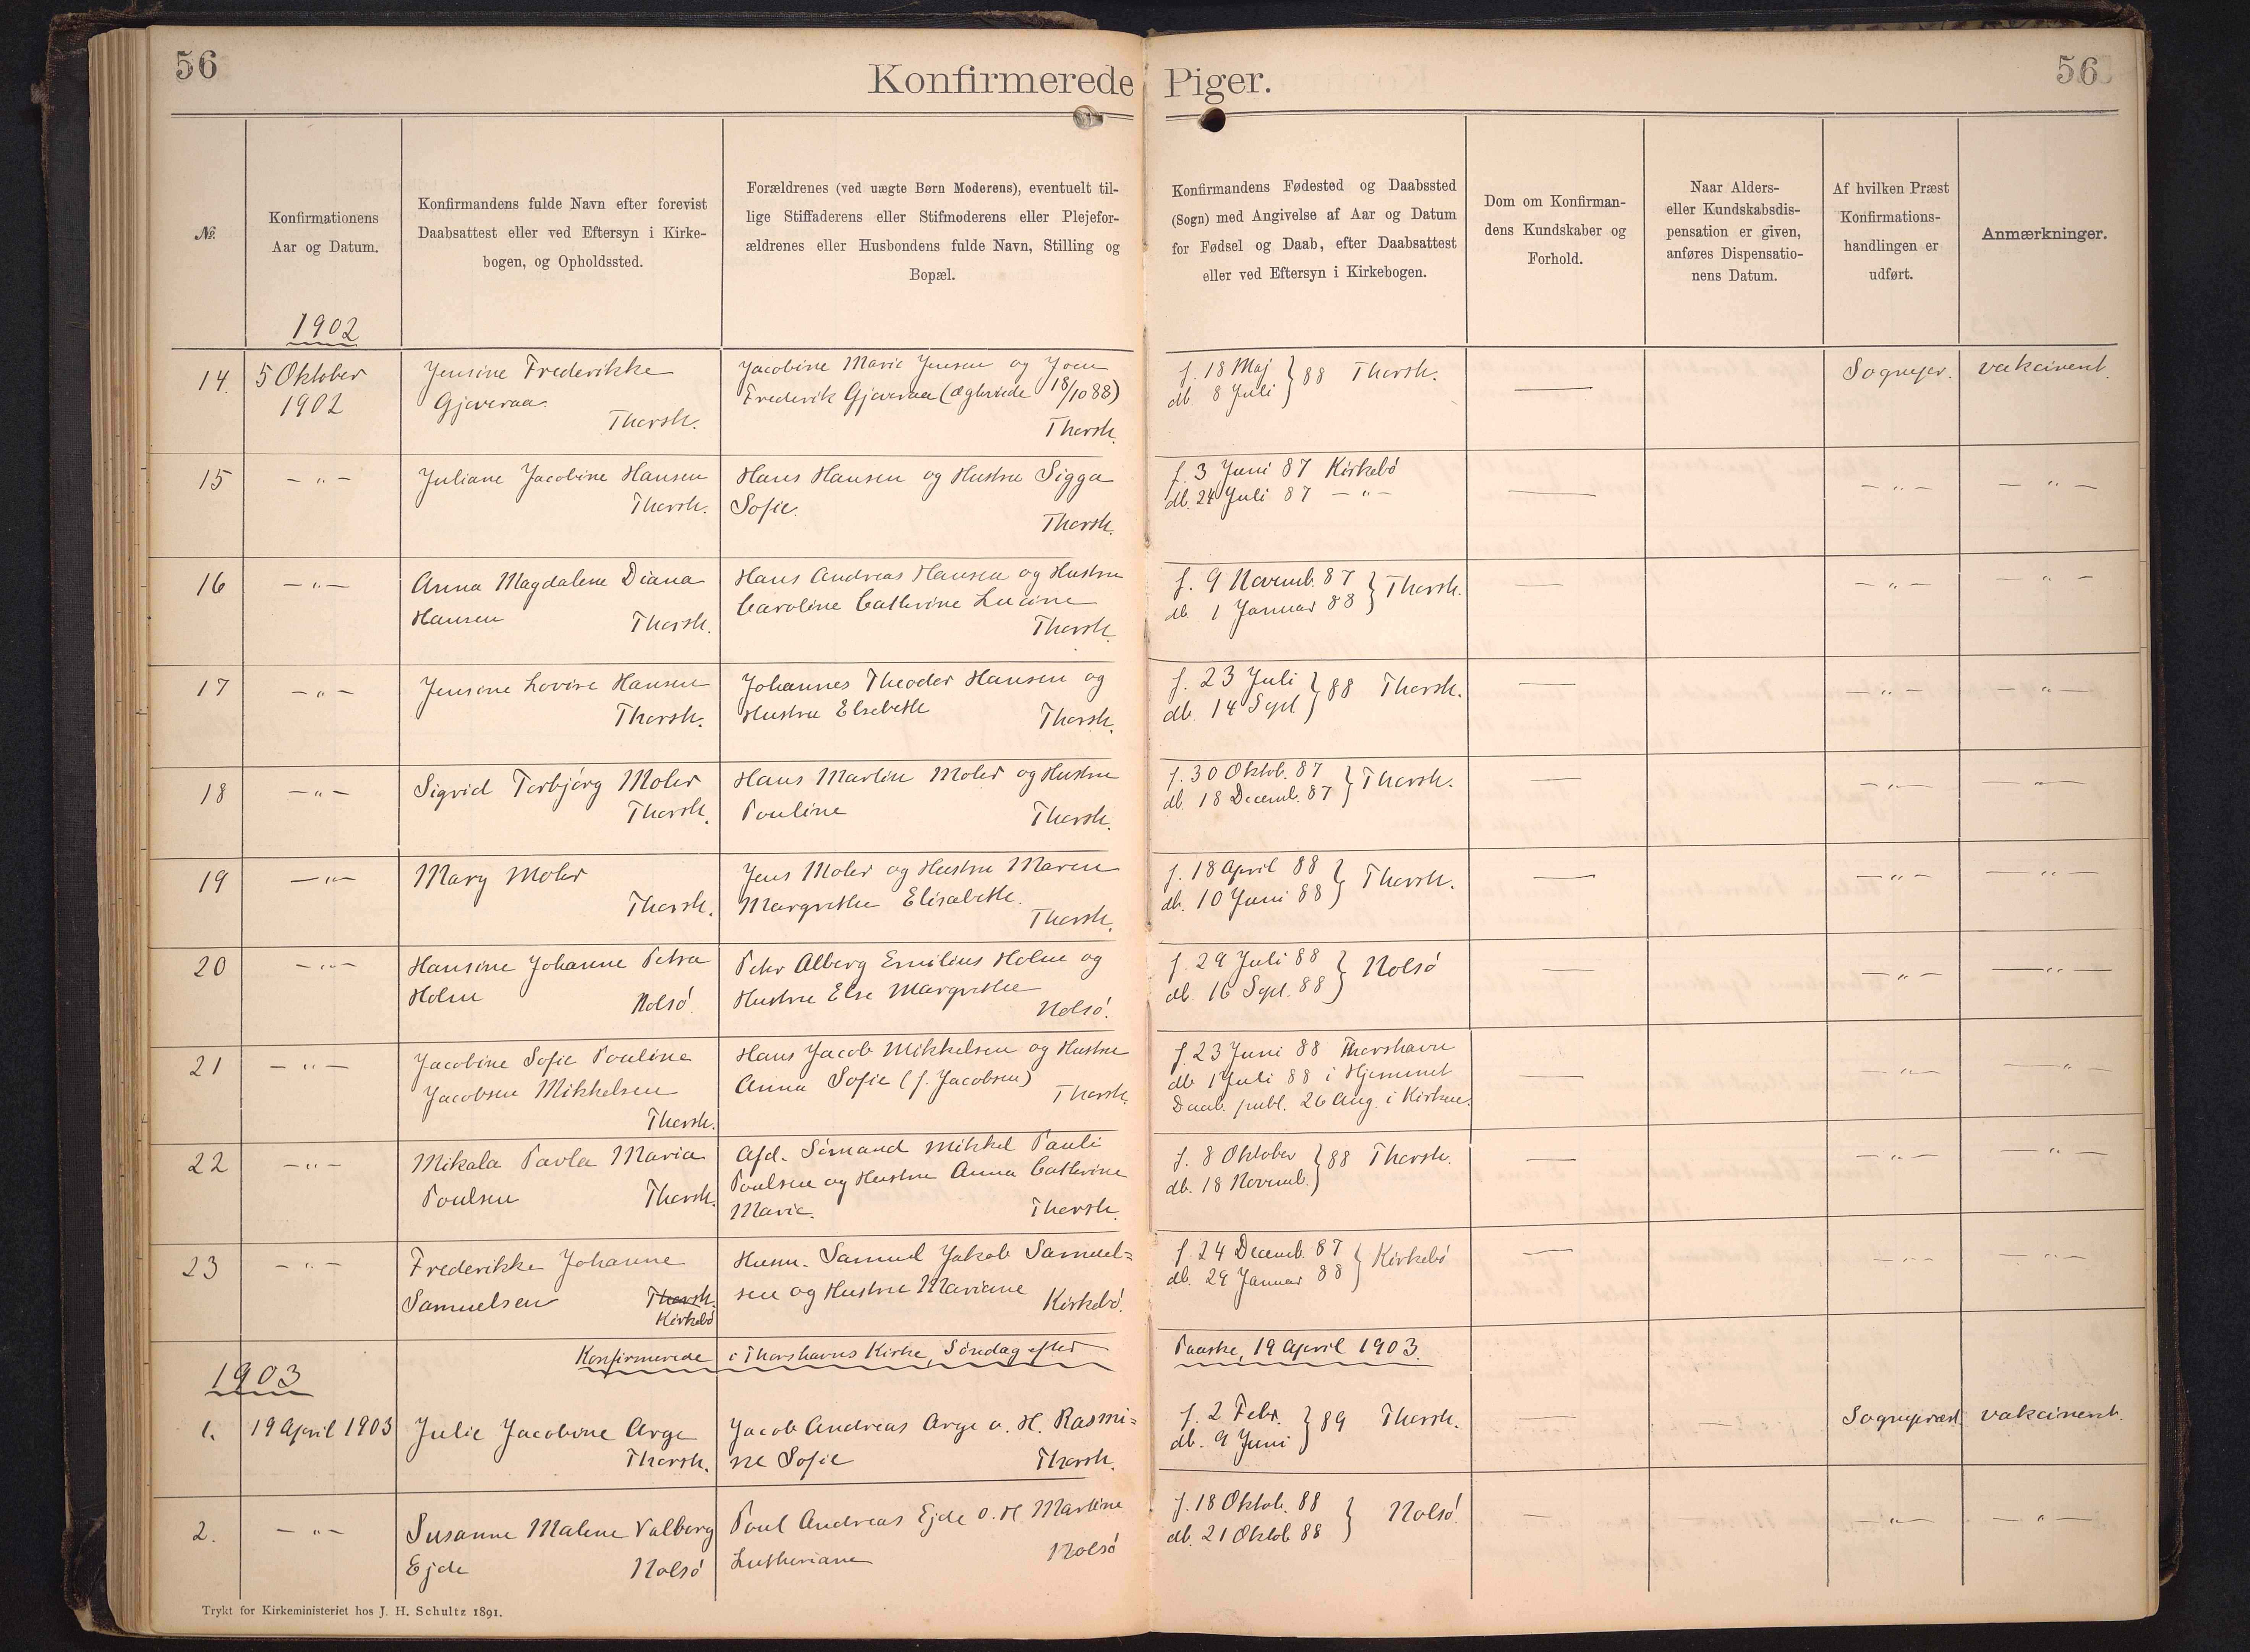 56
Konfirmerede Piger.
56
№.
Konfirmationens
Aar og Datum.
Konfirmandens fulde Navn efter forevist
Daabsattest eller ved Eftersyn i Kirke-
bogen, og Opholdssted.
Forældrenes (ved uægte Børn Moderens), eventuelt til-
lige Stiffaderens eller Stifmoderens eller Plejefor-
ældrenes eller Husbondens fulde Navn, Stilling og
Bopæl.
Konfirmandens Fødested og Daabssted
(Sogn) med Angivelse af Aar og Datum
for Fødsel og Daab, efter Daabsattest
eller ved Eftersyn i Kirkebogen.
Dom om Konfirman-
dens Kundskaber og
Forhold.
Naar Alders-
eller Kundskabsdis-
pensation er given,
anføres Dispensatio-
nens Datum.
Af hvilken Præst
Konfirmations-
handlingen er
udført.
Anmærkninger.
1902
14.
5 Oktober
1902
Jensine Frederikke
Gjaveraa
Thorsh.
Jacobine Marie Jensen og Joen
Frederik Gjaveraa (ægteviede 18/10 88)
Thorsh.
f. 18 Maj } 88 Thorsh.
db. 8 Juli
—
Sognepr.
vakcineret.
15
— „ —
Juliane Jacobine Hansen
Thorsh.
Hans Hansen og Hustru Sigga
Sofie.
Thorsh.
f. 3 Juni 87 Kirkebö
db. 24 Juli 87 — „ —
—
— „ —
— „ —
16
— „ —
Anna Magdalene Diana
Hansen
Thorsh.
Hans Andreas Hansen og Hustru
Caroline Cathrine Lucine
Thorsh.
f. 9 Novemb. 87 } Thorsh.
db 1 Januar 88
—
— „ —
— „ —
17
— „ —
Jensine Lovise Hansen
Thorsh.
Johannes Theodor Hansen og
Hustru Elsebeth
Thorsh.
f. 23 Juli } 88 Thorsh.
db. 14 Sept
—
— „ —
— „ —
18
— „ —
Sigrid Torbjörg Mohr
Thorsh.
Hans Martin Mohr og Hustru
Pouline
Thorsh.
f. 30 Oktob. 87 } Thorsh.
db. 18 Decemb. 87
—
— „ —
— „ —
19
— „ —
Mary Mohr
Thorsh.
Jens Mohr og Hustru Maren
Margrethe Elisabeth.
Thorsh.
f. 18 April 88 } Thorsh.
db. 10 Juni 88
—
— „ —
— „ —
20
— „ —
Hansine Johanne Petra
Holm
Nolsö.
Peter Alberg Emilius Holm og
Hustru Else Margrethe
Nolsö.
f. 29 Juli 88 } Nolsö
db. 16 Sept. 88
—
— „ —
— „ —
21
— „ —
Jacobine Sofie Pouline
Jacobsen Mikkelsen
Thorsh.
Hans Jacob Mikkelsen og Hustru
Anna Sofie (f. Jacobsen)
Thorsh.
f. 23 Juni 88 Thorshavn
db 1 Juli 88 i Hjemmet
Daab. publ. 26 Aug. i Kirken.
—
— „ —
— „ —
22
— „ —
Mikala Paula Maria
Poulsen
Thorsh.
Afd. Sömand Mikkel Pauli
Poulsen og Hustru Anna Cathrine
Marie.
Thorsh.
f. 8 Oktober } 88 Thorsh.
db. 18 Novemb.
—
— „ —
— „ —
23
— „ —
Frederikke Johanne
Samuelsen
Thorsh.
Kirkebö
Husm. Samuel Jakob Samuel=
sen og Hustru Mariane
Kirkebö.
f. 24 Decemb. 87 } Kirkebö
db. 29 Januar 88
—
— „ —
— „ —
Konfirmerede i Thorshavns Kirke, Söndag efter Paaske, 19 April 1903.
1903
1.
19 April 1903
Julie Jacobine Arge
Thorsh.
Jacob Andreas Arge o. H. Rasmi=
ne Sofie
Thorsh.
f. 2 Febr. } 89 Thorsh.
db. 9 Juni
—
—
Sognepræst.
vakcineret.
2.
— „ —
Susanne Malene Valborg
Ejde
Nolsö
Poul Andreas Ejde o. H. Martine
Lutheriane
Nolsö
f. 18 Oktob. 88 } Nolsö.
db. 21 Oktob 88
—
—
— „ —
— „ —
Trykt for Kirkeministeriet hos J. H. Schultz 1891.